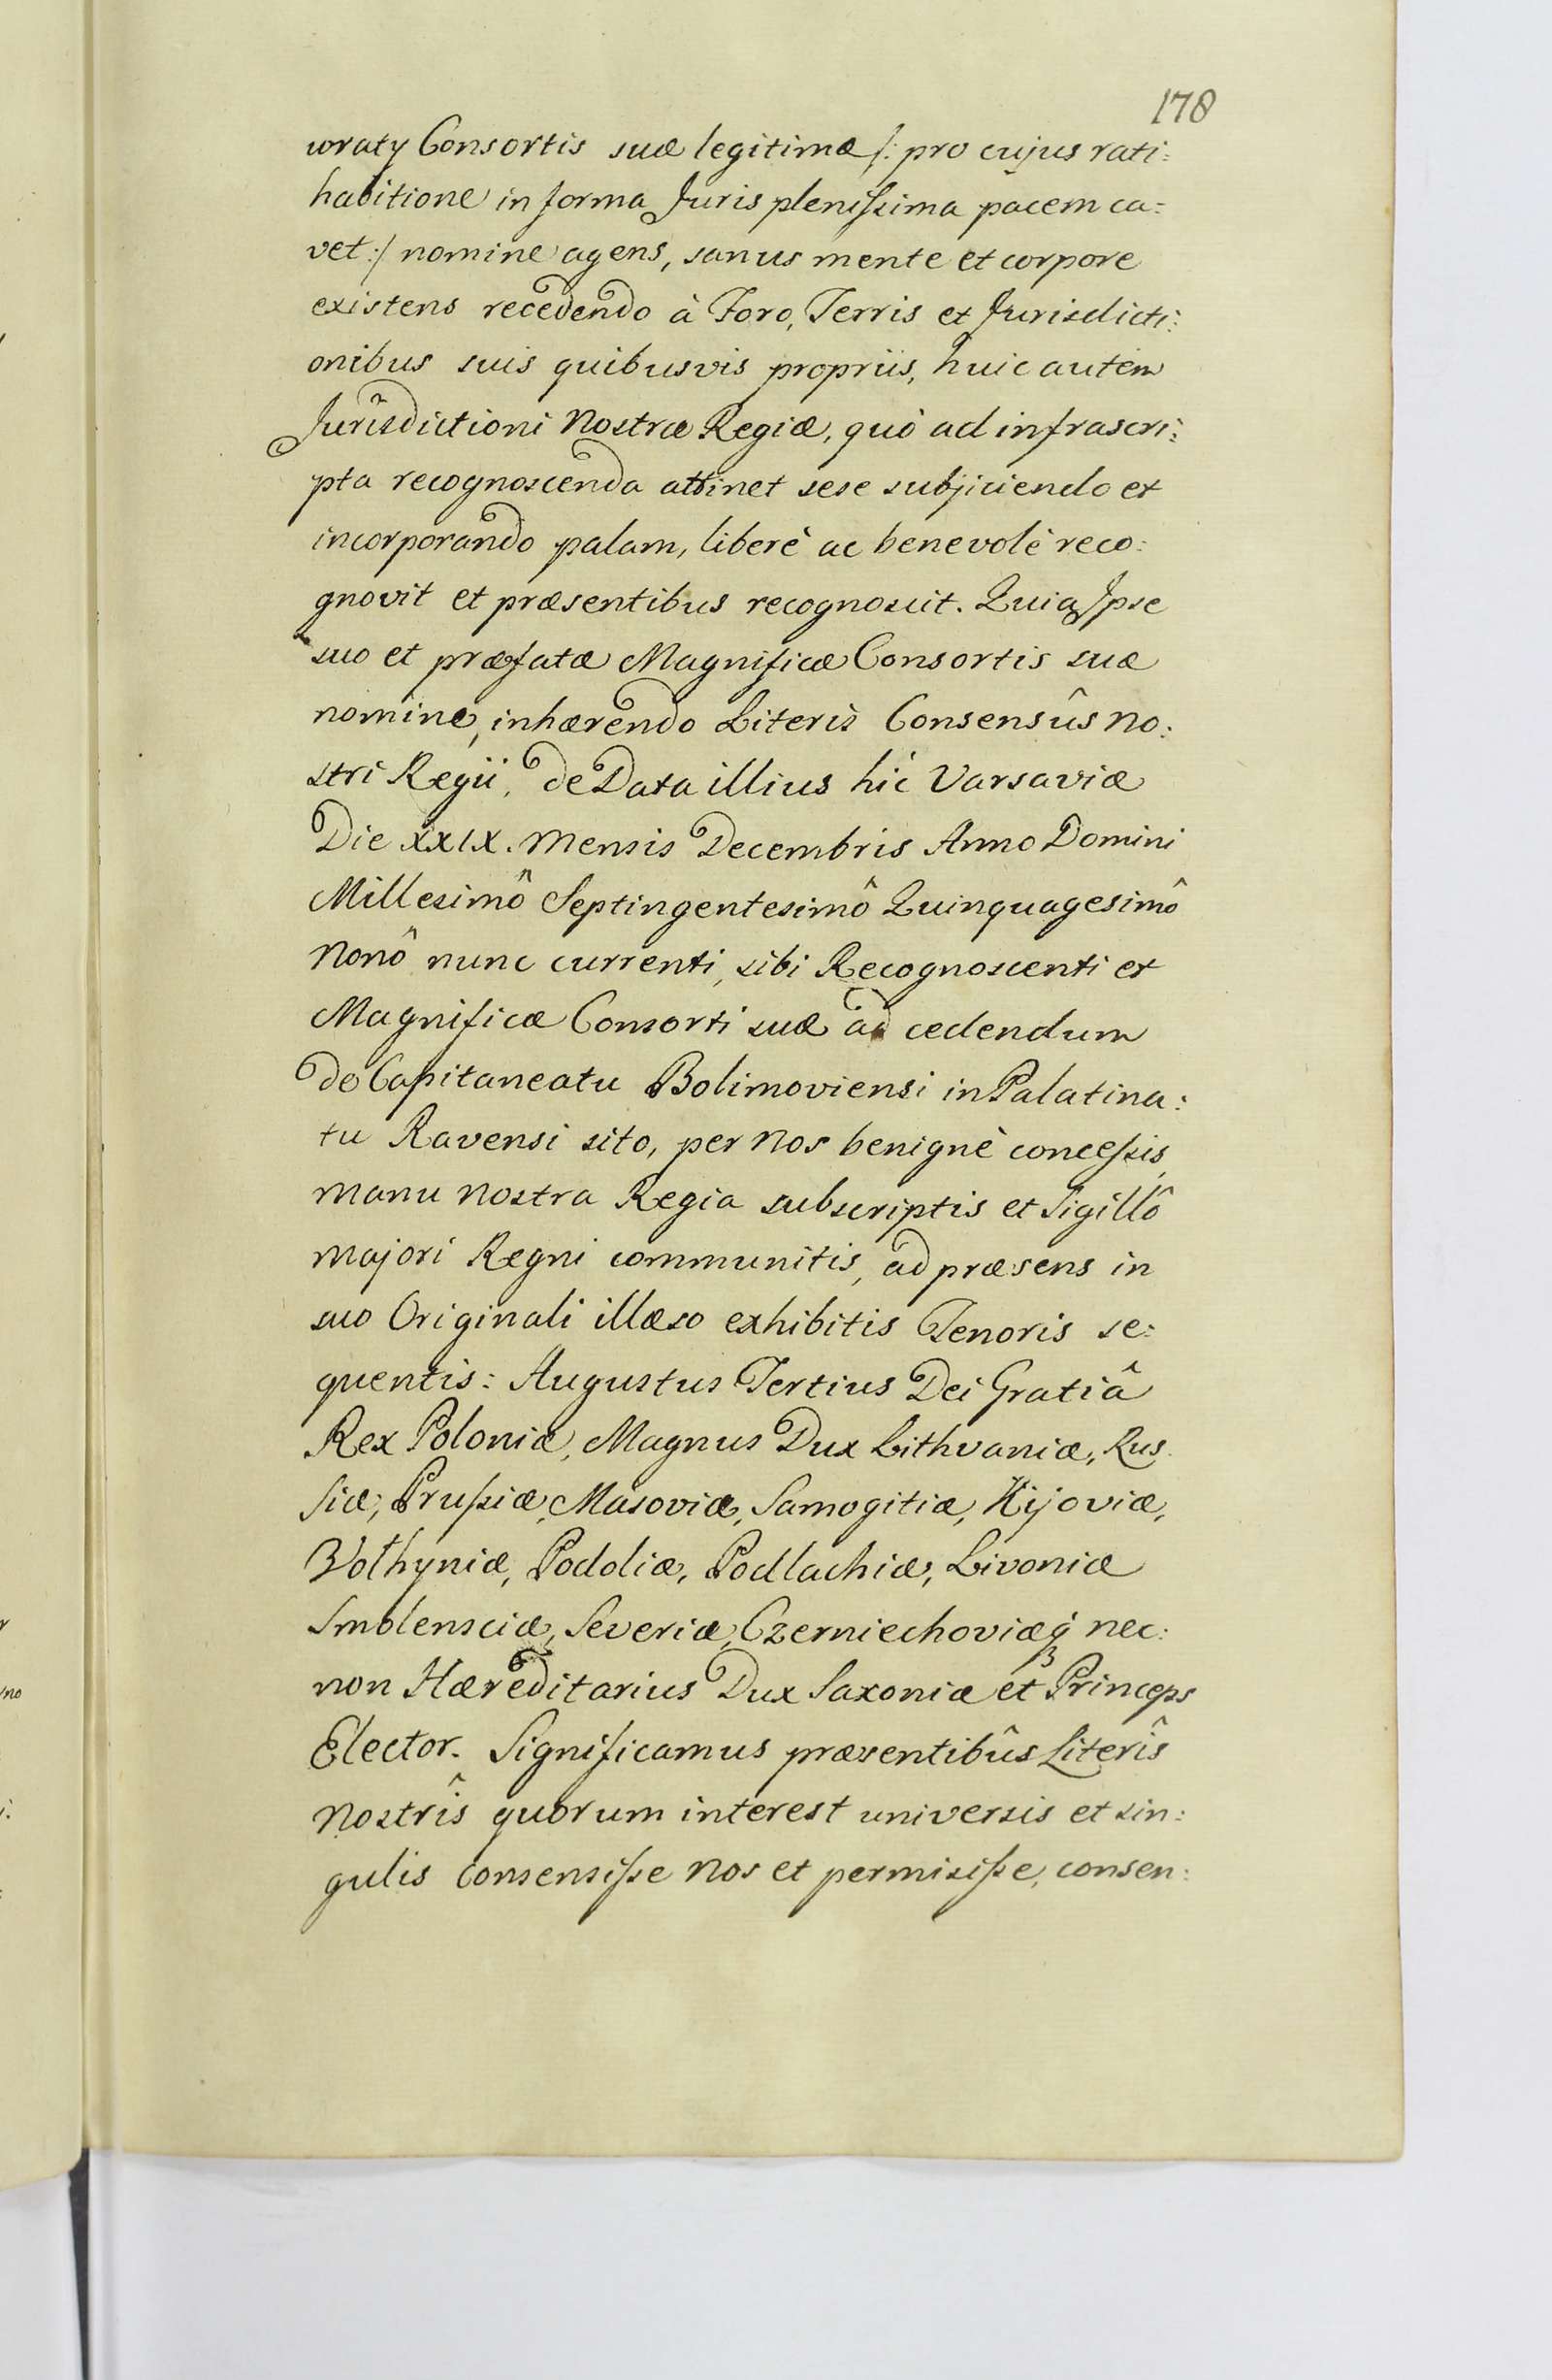 178
woraty Consortis suæ legitimæ /: pro cujus rati:
habitione in forma Juris plenissima pacem ca:
vet :/ nomine agens, sanus mente et corpore
existens recedendo à Foro, Terris et Jurisdicti:
onibus suis quibusvis propriis, huic autem
Jurisdictioni Nostræ Regiæ, quò ad infrascri:
pta recognoscenda attinet sese subjiciendo et
incorporando palam, liberè ac benevolè reco:
gnovit et præsentibus recognoscit. Quia Ipse
suo et præfatæ Magnificæ Consortis suæ
nomine, inhærendo Literis Consensûs No:
stri Regii, de Data illius hîc Varsaviæ
Die XXIX. Mensis Decembris Anno Domini
Millesimô Septingentesimô Quinquagesimô
Nonô nunc currenti, sibi Recognoscenti et
Magnificæ Consorti suæ ad cedendum
de Capitaneatu Bolimoviensi in Palatina:
tu Ravensi sito, per Nos benignè concessis,
Manu Nostra Regia subscriptis et Sigillô
Majori Regni communitis, ad præsens in
suo Originali illæso exhibitis Tenoris se:
quentis: Augustus Tertius Dei Gratiâ
Rex Poloniæ, Magnus Dux Lithvaniæ, Rus
siæ, Prussiæ, Masoviæ, Samogitiæ, Kijoviæ,
Volhyniæ, Podoliæ, Podlachiæ, Livoniæ
Smolensciæ, Severiæ, Czerniechoviæq3 nec:
non Hæreditarius Dux Saxoniæ et Princeps
Elector. Significamus præsentibûs Literîs
Nostrîs quorum interest universis et sin:
gulis Consensisse Nos et permisisse, consen: